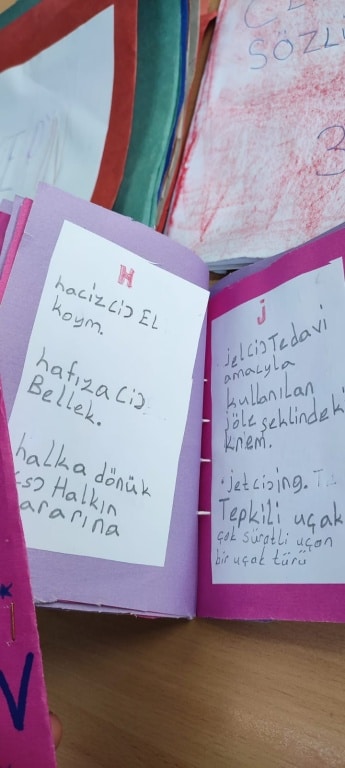 SÖZLÜ
3
H
haciz(i) EL
koym.
hafıza(i).
Bellek.
halka dönük
(s) Halkın
yararına
j
jel(i) Tedavi
amacıyla
kullanılan
jöle şeklindeki
krem.
jet(i) ing.
Tepkili uçak
çok süratli uçan
bir uçak türü